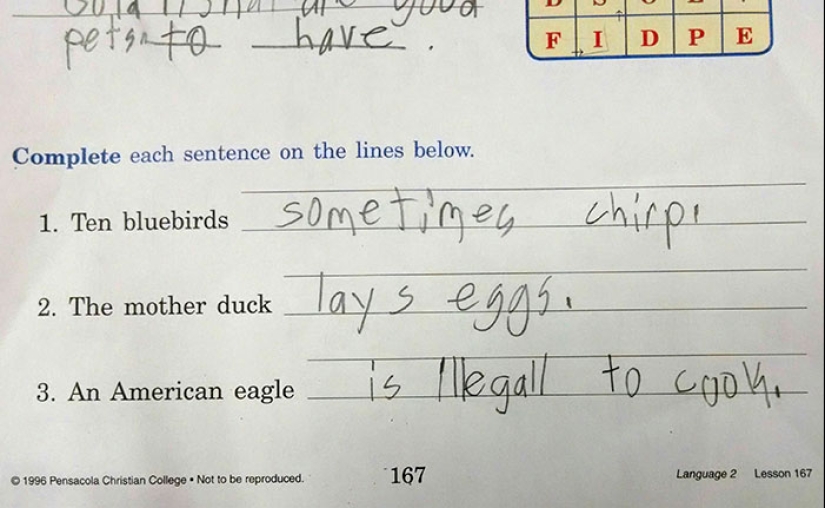 pets to have.
F I D P E
Complete each sentence on the lines below.
1. Ten bluebirds sometimes chirp.
2. The mother duck lays eggs.
3. An American eagle is Illegall to cook.
© 1996 Pensacola Christian College • Not to be reproduced.
167
Language 2 Lesson 167